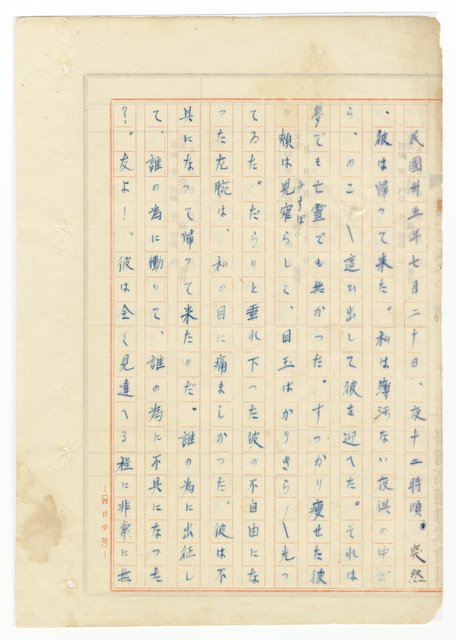 民國卅五年七月二十日、夜十二時頃。突然
、彼は帰って来た。私は薄汚ない夜具の中か
ら、のこ〳〵這ひ出して彼を迎へた。それは
夢でも亡霊でも無かつた。すつかり瘦せた彼
の頰は見窄らしく、目玉ばかりきら〳〵光つ
みすぼ
てゐた。だらりと垂れ下つた彼の不自由にな
つた左腕は、私の目に痛ましかつた。彼は不
具になって帰って来たのだ。誰の為に出征し
て、誰の為に働いて、誰の為に不具になつた
?。友よ!。彼は全く見違へる程に非常に無
(四百字詰)